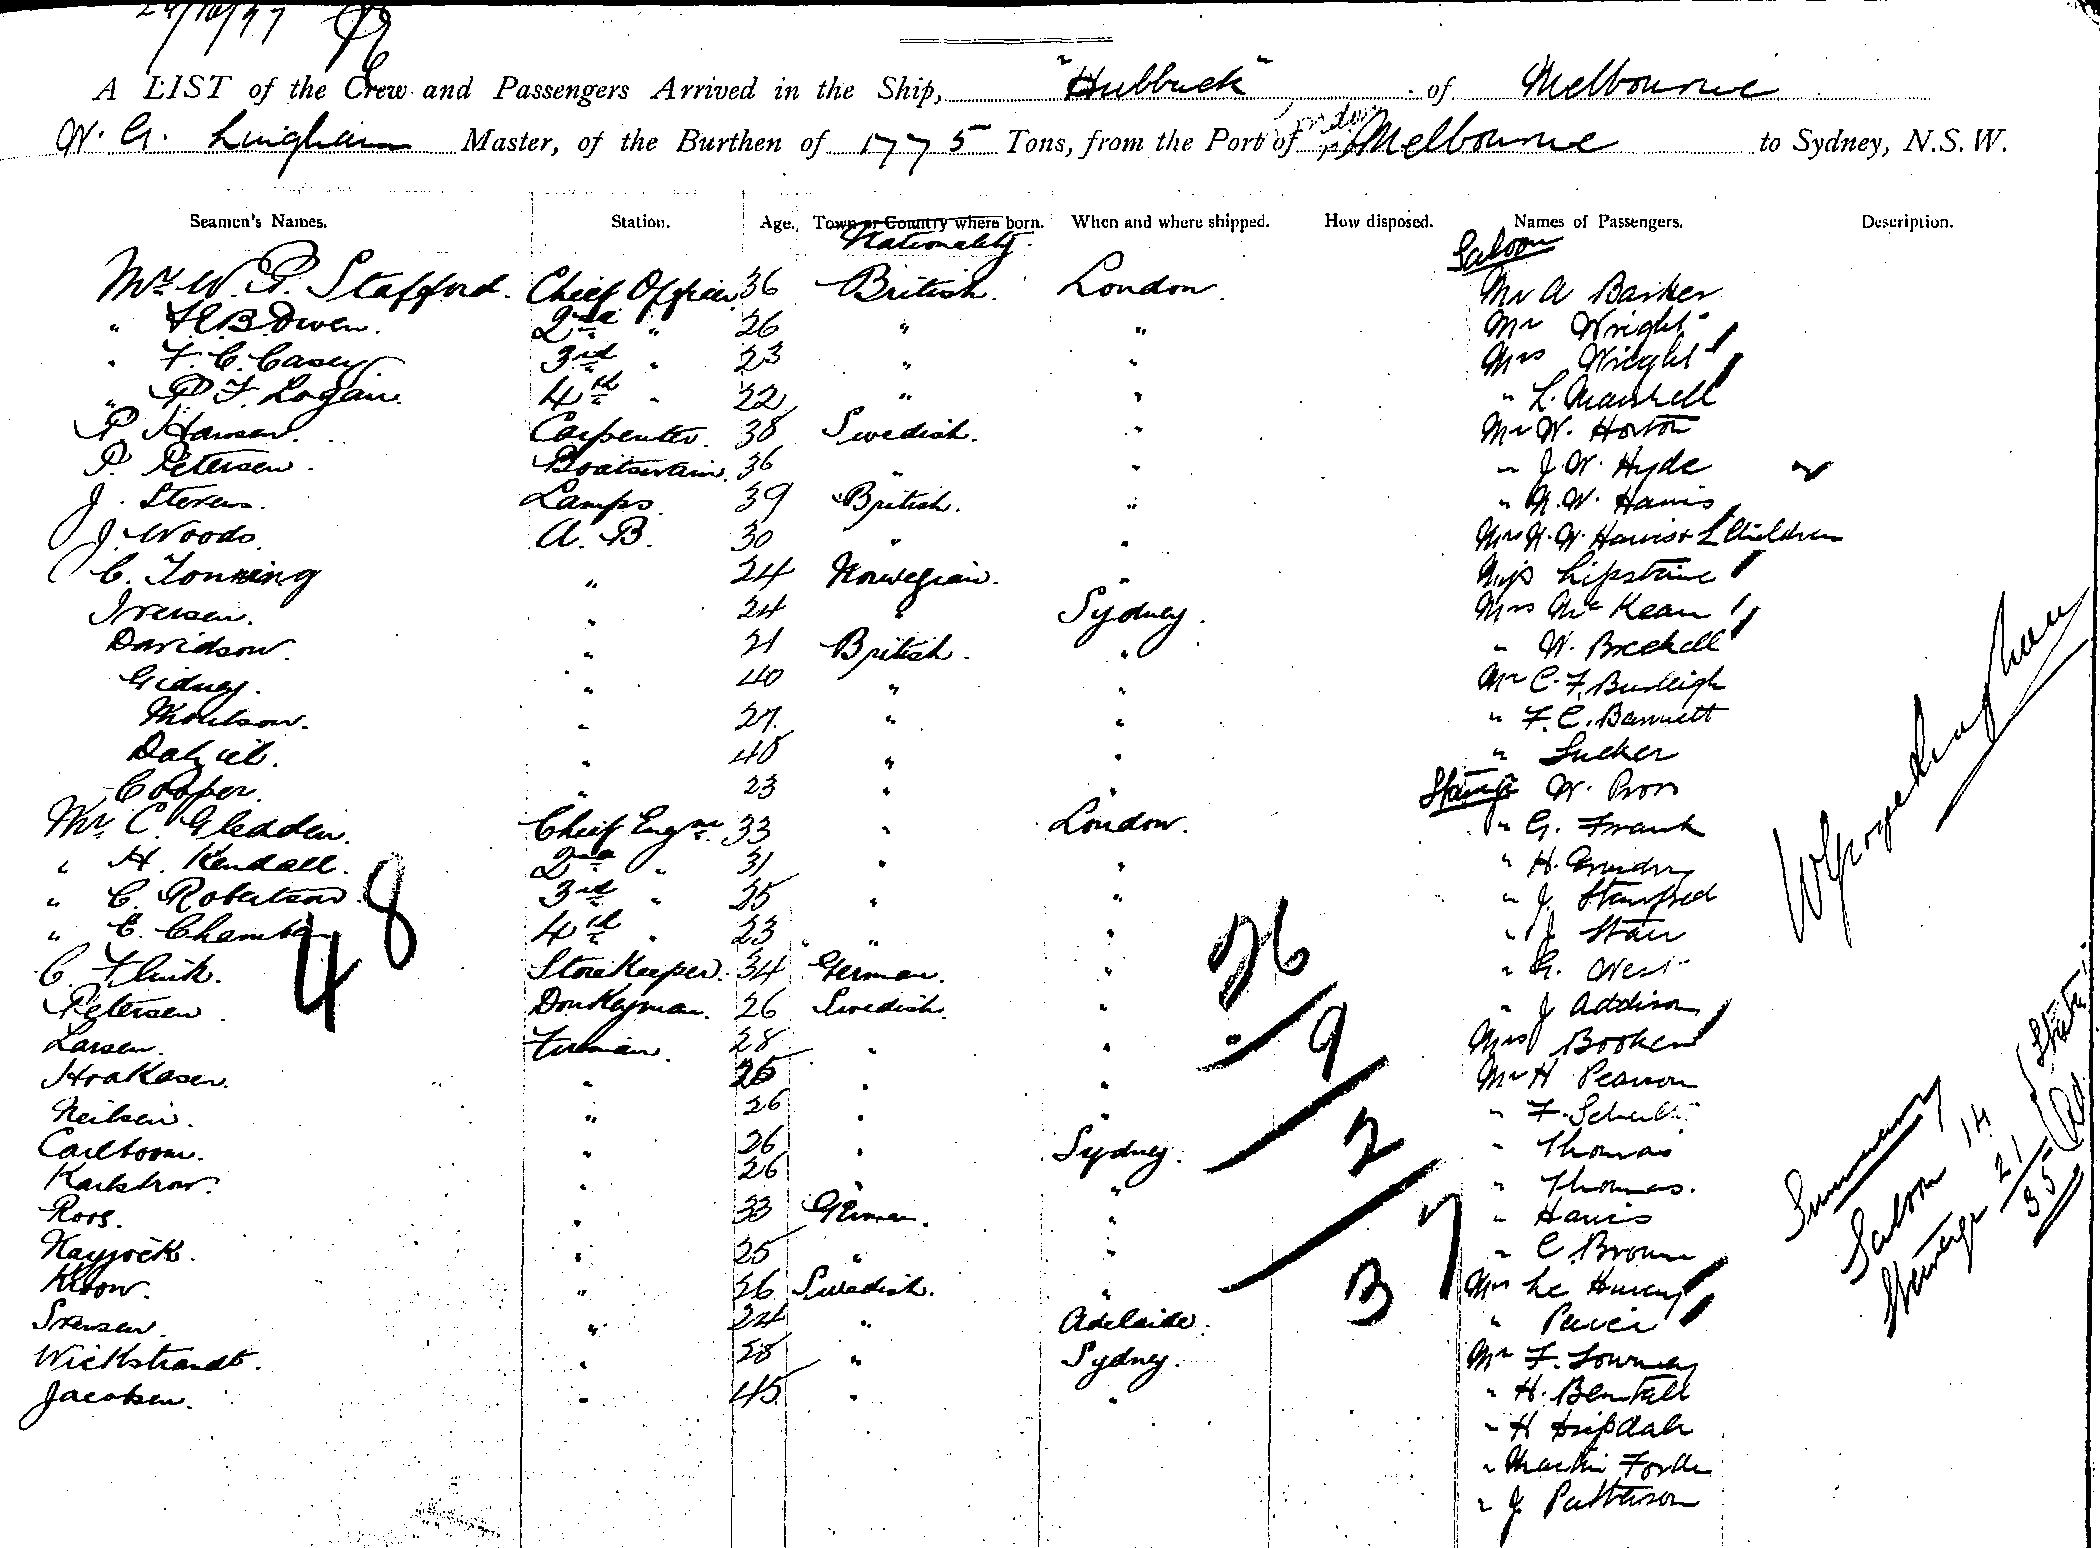 A LIST of the Crew and Passengers Arrived in the Ship, "Hubbuck" of Melbourne
W. G. Lingham Master, of the Burthen of 1775 Tons, from the Port of London Melbourne to Sydney, N.S.W.
Seamen's Names. Station. Age. Town or Country where born. When and where shipped. How disposed. Names of Passengers. Description.
Nationality.
Saloon
Mr. W. P. Stafford. Chief Officer 36 British. London. Mr A Barker
" H. B. Owen. 2nd " 26 " " Mr Wright
" F. C. Casey 3rd " 23 " " Mrs Wright
" P. F. Logan. 4th " 22 " " " L.
P Hansen. Carpenter. 38 Swedish. " Mr W. Horton
P. Petersen. Boatswain. 36 " " " J W. Hyde
J. Stevens. Lamps. 39 British. " " N. W. Harris
J. Woods. A. B. 30 " " Mrs N. W. Harris + 2 Children
C. Tonning " 24 Norwegian. " Miss Lipstine
Iversen. " 24 " Sydney. Mrs McKean
Davidson. " 21 British. " " W.
Gidney. " 40 " " Mr C. F. Burleigh
" 27. " " " F. C. Bannett
Dalziel. " 40 " " " Tucker
Cooper. " 23 " " Steerage W.
Mr. C. Gledden. Chief Engnr 33 " London. " G. Frank
" H. Kendall. 2nd " 31 " " " H.
" C. Robertson. 3rd " 25 " " " J.
" E. Chamber 4th " 23 " " " J Starr
C. Flink. Storekeeper. 34 German. " " G. West
Petersen. Donkeyman. 26 Swedish. " " J Addison
Larsen. Fireman. 28 " " Mrs Booker
Haakasen. " 26 " " Mr H Pearson
Neilsen. " 26 " " " F. Schultz
Carlboom. " 26 " Sydney. " Thomas
Karlstrow. " 26 " " " Thomas.
Roos. " 33 German. " " Harris
" 25 " " " C. Brown
Kroon. " 26 Swedish. " Mrs Le
Svensen. " 24 " Adelaide. "
Wickstrandt. " 28 " Sydney. Mr F.
Jacobsen. " 45 " " " H. Bentall
" H Hipdale
" Martin Forde
" J. Patterson
48
26
9
2
37
Summary
Saloon 14
Steerage 21
35